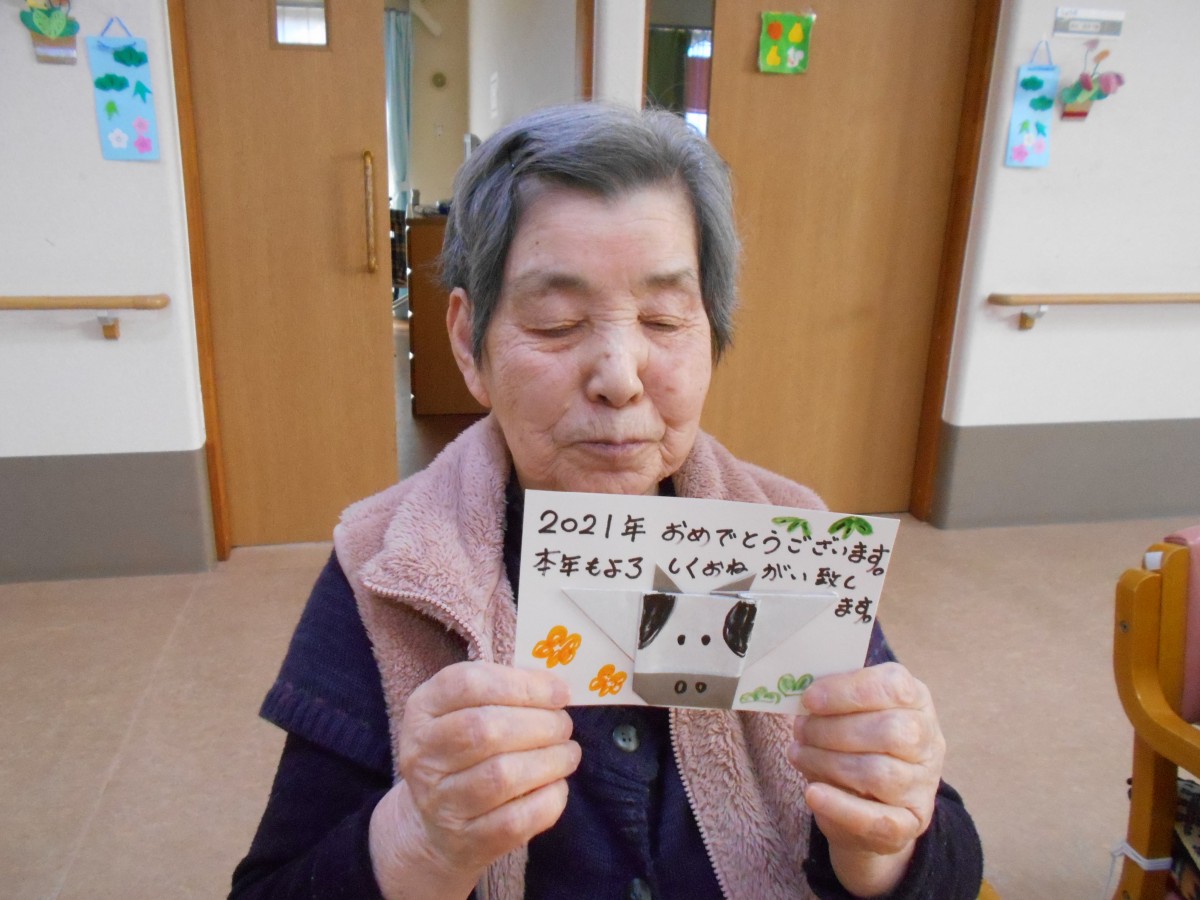 2021年 おめでとうございます。
本年もよろしくおねがい致し
ます。